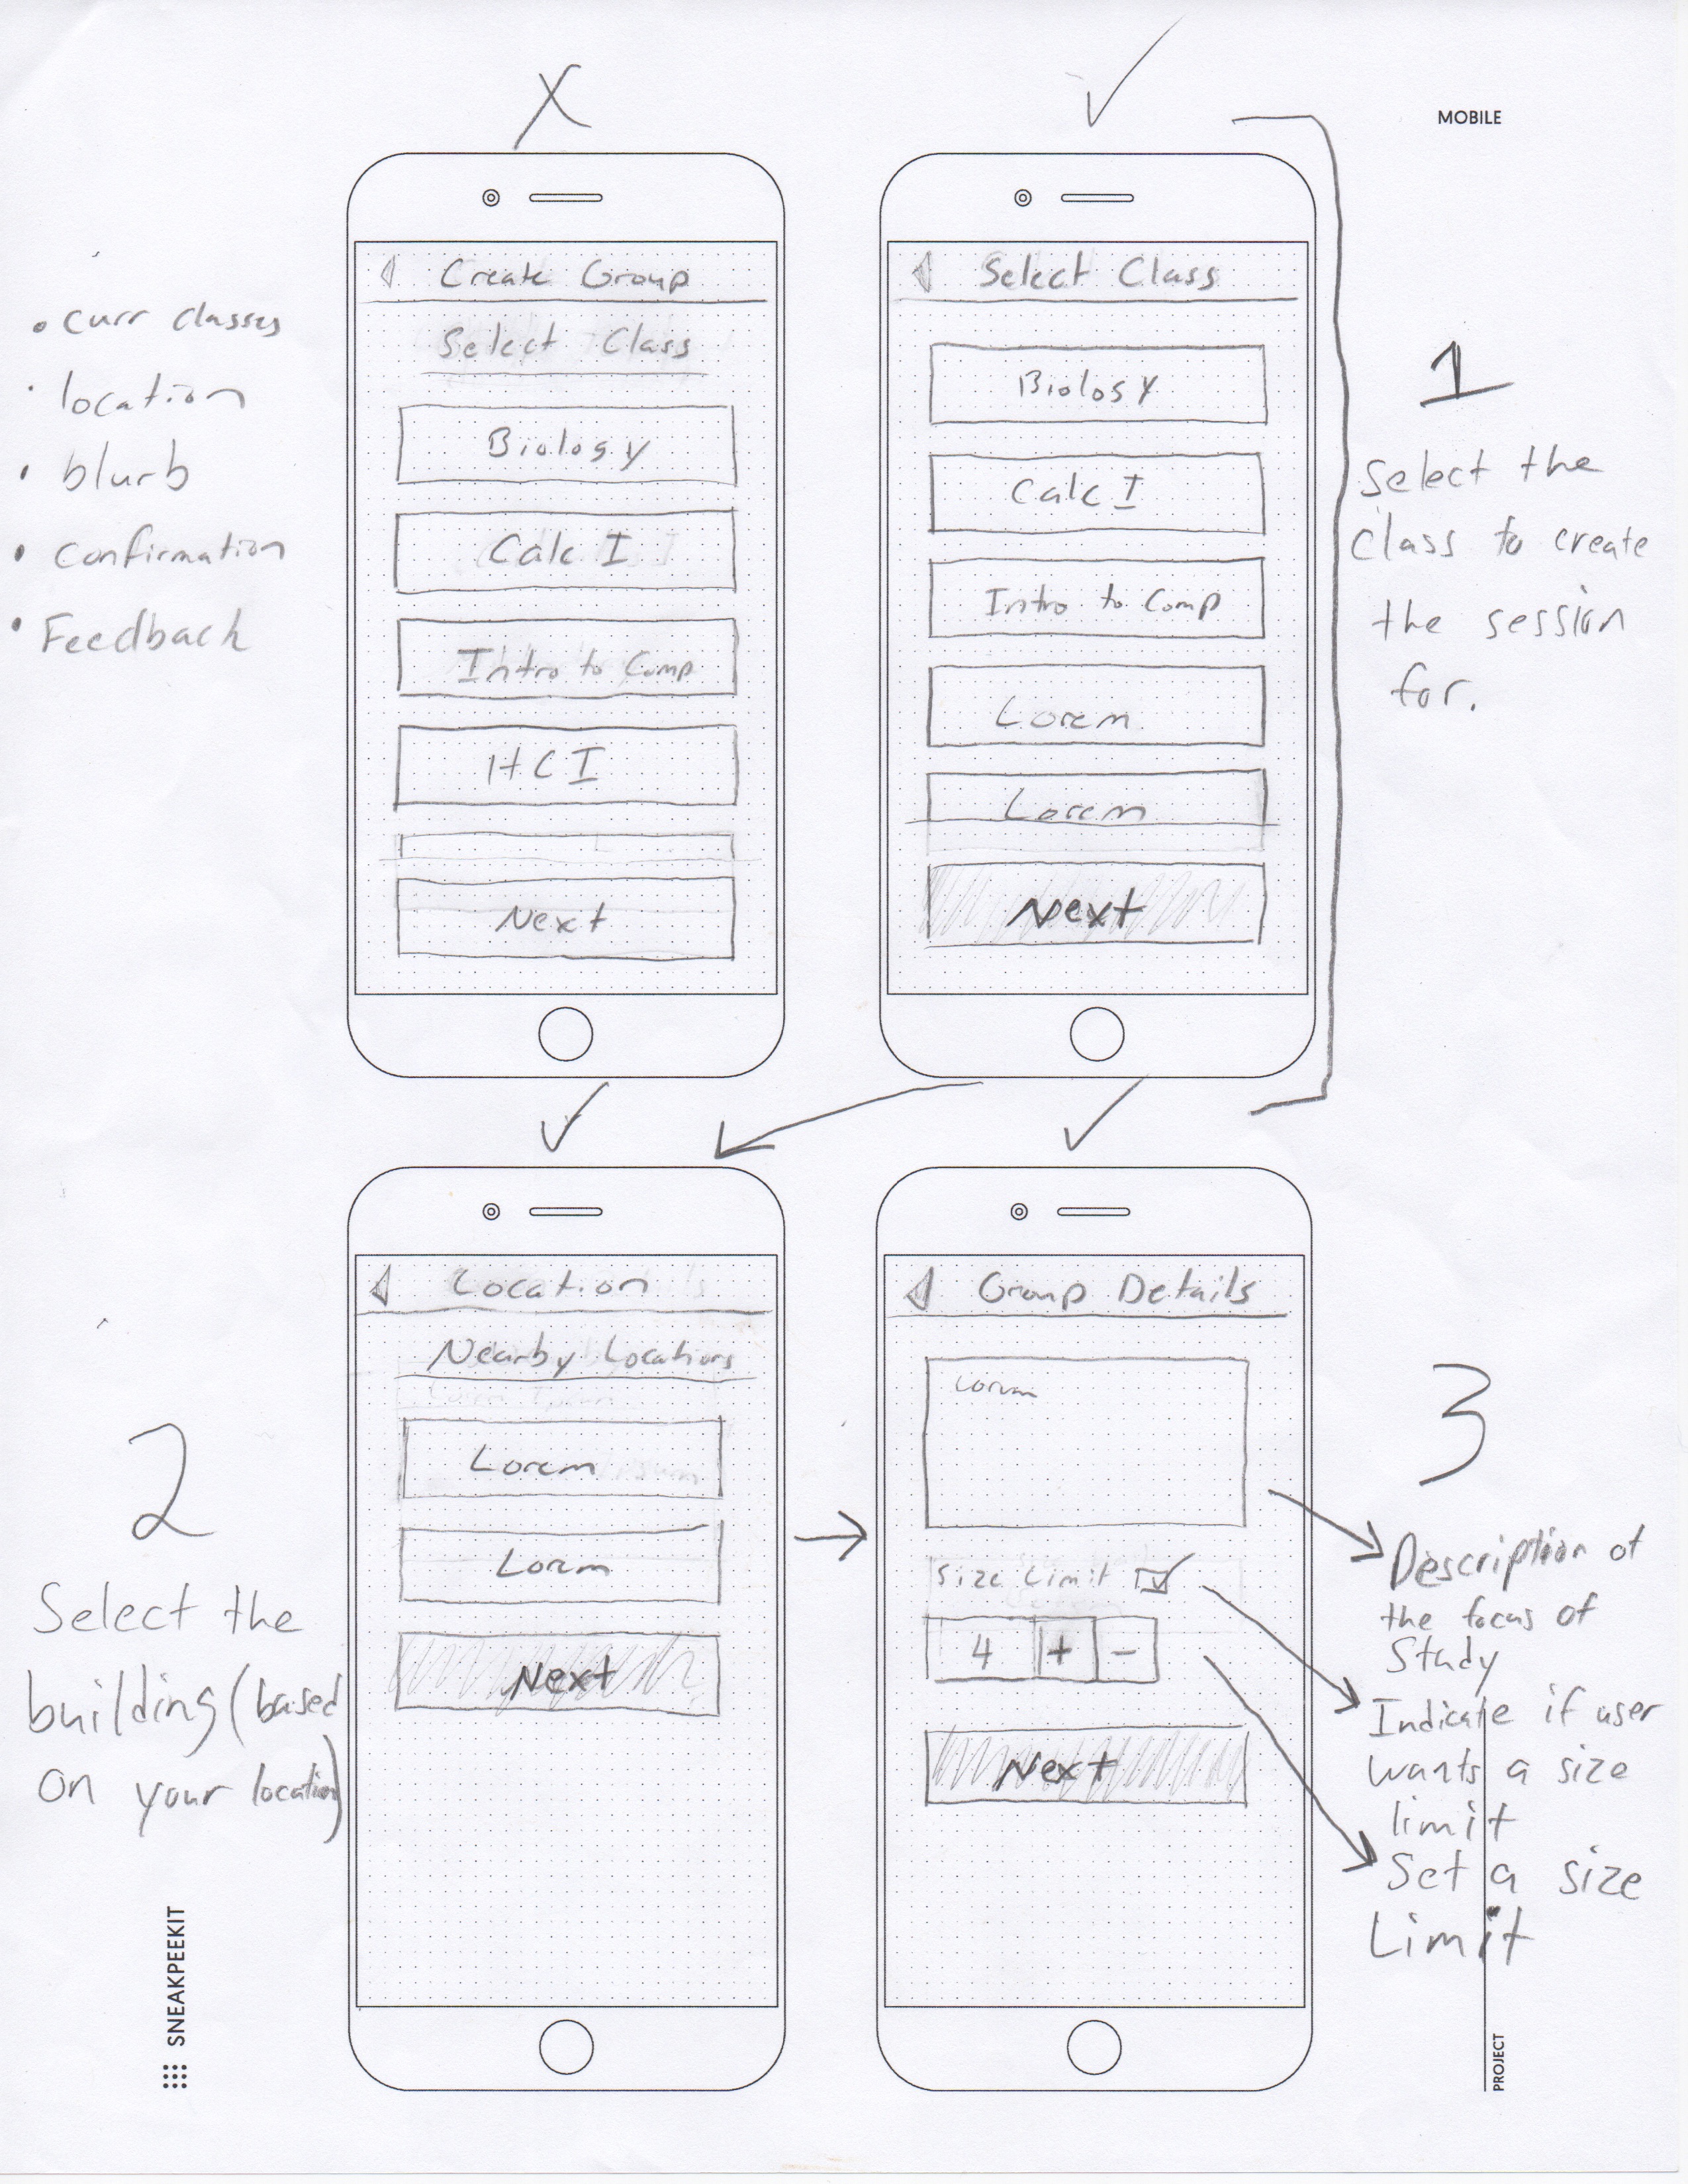 MOBILE
• curr classes
• location
• blurb
• confirmation
• Feedback
Create Group
Select Class
Biology
Calc I
Intro to Comp
HCI
Next
Select Class
Biology
Calc I
Intro to Comp
Lorem
Lorem
Next
1
Select the
class to create
the session
for.
2
Select the
building (based
on your location)
Location
Nearby Locations
Lorem
Lorem
Next
Group Details
Lorem
Size Limit
4 + -
Next
3
Description of
the focus of
Study
Indicate if user
wants a size
limit
Set a size
Limit
SNEAKPEEKIT
PROJECT